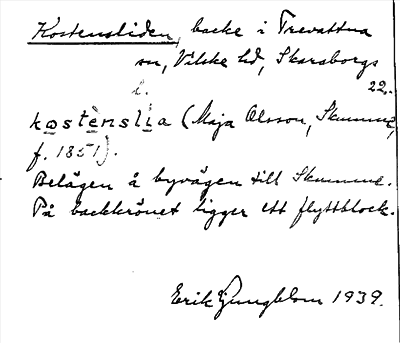 Kostensliden, backe i Trevattna
sn, Vilske hd, Skaraborgs
l. 22.
kostenslia (Maja Olsson, Skumme,
f. 1851).
Belägen å byvägen till Skumme.
På backkrönet ligger ett flyttblock.
Erik Ljungblom 1939.